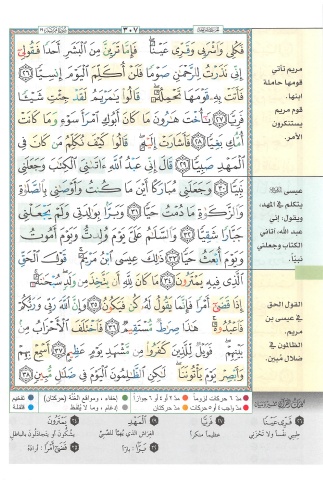 ٣٠٧
فَكُلِي وَاشْرَبِي وَقَرِّي عَيْنًا فَإِمَّا تَرَيِنَّ مِنَ الْبَشَرِ أَحَدًا فَقُولِي
إِنِّي نَذَرْتُ لِلرَّحْمَٰنِ صَوْمًا فَلَنْ أُكَلِّمَ الْيَوْمَ إِنْسِيًّا ٢٦
فَأَتَتْ بِهِ قَوْمَهَا تَحْمِلُهُ قَالُوا يَا مَرْيَمُ لَقَدْ جِئْتِ شَيْئًا
فَرِيًّا ٢٧ يَا أُخْتَ هَارُونَ مَا كَانَ أَبُوكِ امْرَأَ سَوْءٍ وَمَا كَانَتْ
أُمُّكِ بَغِيًّا ٢٨ فَأَشَارَتْ إِلَيْهِ قَالُوا كَيْفَ نُكَلِّمُ مَنْ كَانَ فِي
الْمَهْدِ صَبِيًّا ٢٩ قَالَ إِنِّي عَبْدُ اللَّهِ آتَانِيَ الْكِتَابَ وَجَعَلَنِي
نَبِيًّا ٣٠ وَجَعَلَنِي مُبَارَكًا أَيْنَ مَا كُنْتُ وَأَوْصَانِي بِالصَّلَاةِ
وَالزَّكَاةِ مَا دُمْتُ حَيًّا ٣١ وَبَرًّا بِوَالِدَتِي وَلَمْ يَجْعَلْنِي
جَبَّارًا شَقِيًّا ٣٢ وَالسَّلَامُ عَلَيَّ يَوْمَ وُلِدْتُ وَيَوْمَ أَمُوتُ
وَيَوْمَ أُبْعَثُ حَيًّا ٣٣ ذَٰلِكَ عِيسَى ابْنُ مَرْيَمَ قَوْلَ الْحَقِّ
الَّذِي فِيهِ يَمْتَرُونَ ٣٤ مَا كَانَ لِلَّهِ أَنْ يَتَّخِذَ مِنْ وَلَدٍ سُبْحَانَهُ
إِذَا قَضَىٰ أَمْرًا فَإِنَّمَا يَقُولُ لَهُ كُنْ فَيَكُونُ ٣٥ وَإِنَّ اللَّهَ رَبِّي وَرَبُّكُمْ
فَاعْبُدُوهُ هَٰذَا صِرَاطٌ مُسْتَقِيمٌ ٣٦ فَاخْتَلَفَ الْأَحْزَابُ مِنْ
بَيْنِهِمْ فَوَيْلٌ لِلَّذِينَ كَفَرُوا مِنْ مَشْهَدِ يَوْمٍ عَظِيمٍ ٣٧ أَسْمِعْ بِهِمْ
وَأَبْصِرْ يَوْمَ يَأْتُونَنَا لَٰكِنِ الظَّالِمُونَ الْيَوْمَ فِي ضَلَالٍ مُبِينٍ ٣٨
مريم تأتي
قومها حاملة
ابنها.
قوم مريم
يستنكرون
الأمر.
عيسى
يتكلم في المهد،
ويقول: إني
عبد الله، آتاني
الكتاب وجعلني
نبياً.
القول الحق
في عيسى بن
مريم.
الظالمون في
ضلال مُبين.
مدّ ٦ حركات لزوماً مدّ ٢ أو ٤ أو ٦ جوازاً إخفاء، ومواقع الغُنَّة (حركتان) تفخيم
مدّ واجب ٤ أو ٥ حركات مدّ حركتان إدغام، وما لا يُلفظ قلقلة
قَرِّي عَيْنًا
طيبي نفساً ولا تحزني
فَرِيًّا
عظيماً منكراً
الْمَهْدِ
يَمْتَرُونَ